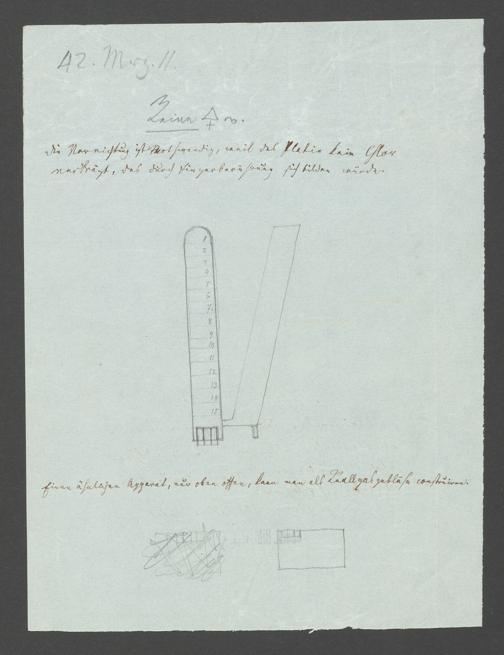 42. Mrz. 11.
Keine 🜍 ow.
Die Vorrichtung ist nothwendig, weil das Platin kein Chlor
verträgt, das durch Fingerberührung sich bilden würde.
1
2
3
4
5
6
7
8
9
10
11
12
13
14
15
Einen ähnlichen Apparat, nur oben offen, kann man als Knallgasgebläse construiren.